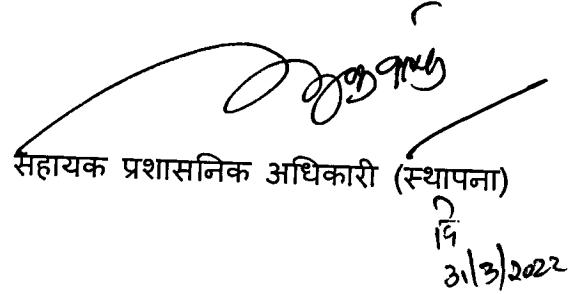 सहायक प्रशासनिक अधिकारी (स्थापना)
31/3/2022